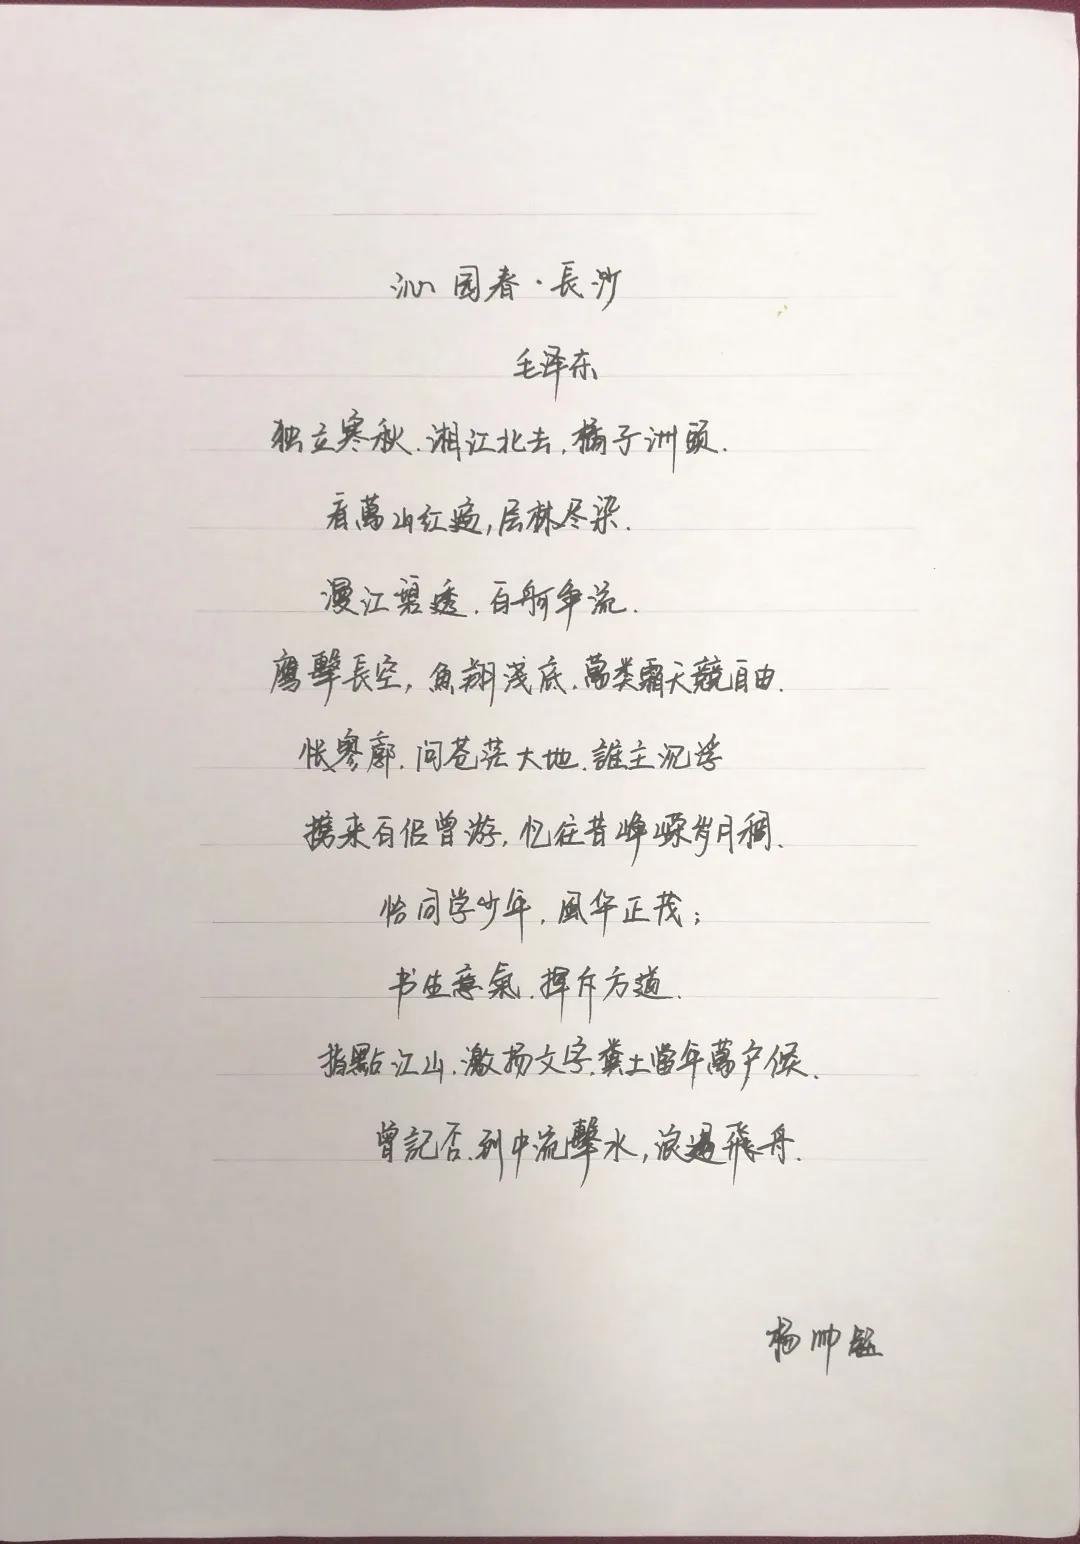 沁园春·長沙
毛泽东
独立寒秋.湘江北去,橘子洲頭.
看萬山红遍,层林尽染.
漫江碧透.百舸争流.
鹰擊長空,魚翔淺底.萬类霜天競自由.
怅寥廓.问苍茫大地.誰主沉浮
携来百侣曾游,忆往昔峥嵘岁月稠.
恰同学少年,風华正茂;
书生意氣.挥斥方遒.
指點江山.激扬文字.糞土當年萬户侯.
曾記否.到中流擊水,浪遏飛舟.
杨帅